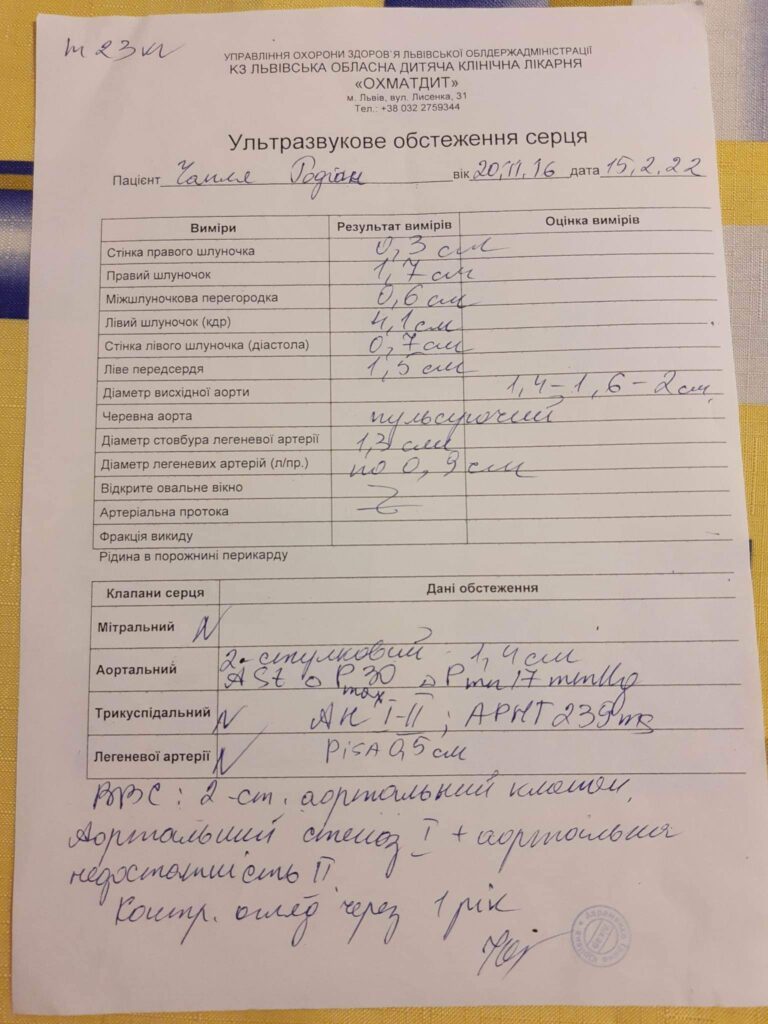 m 23 кг
УПРАВЛІННЯ ОХОРОНИ ЗДОРОВ'Я ЛЬВІВСЬКОЇ ОБЛДЕРЖАДМІНІСТРАЦІЇ
КЗ ЛЬВІВСЬКА ОБЛАСНА ДИТЯЧА КЛІНІЧНА ЛІКАРНЯ
«ОХМАТДИТ»
м. Львів, вул. Лисенка, 31
Тел.: +38 032 2759344
Ультразвукове обстеження серця
Пацієнт Чапля Родіан вік 20,11,16 дата 15,2,22
Виміри Результат вимірів Оцінка вимірів
Стінка правого шлуночка 0,3 см
Правий шлуночок 1,7 см
Міжшлуночкова перегородка 0,6 см
Лівий шлуночок (кдр) 4,1 см
Стінка лівого шлуночка (діастола) 0,7 см
Ліве передсердя 1,5 см
Діаметр висхідної аорти 1,4 – 1,6 – 2 см
Черевна аорта
Діаметр стовбура легеневої артерії 1,3 см
Діаметр легеневих артерій (л/пр.) по 0,9 см
Відкрите овальне вікно
Артеріальна протока
Фракція викиду
Рідина в порожнині перикарду
Клапани серця Дані обстеження
Мітральний N
Аортальний 2-стулковий - 1,4 см
P max 30 17 mmHg
Трикуспідальний N АН I-II ; APHT 239 ms
Легеневої артерії N PISA 0,5 см
ВВС: 2-ст. аортальний клапан,
Аортальний стеноз I + аортальна
недостатність II
Контр. огляд через 1 рік